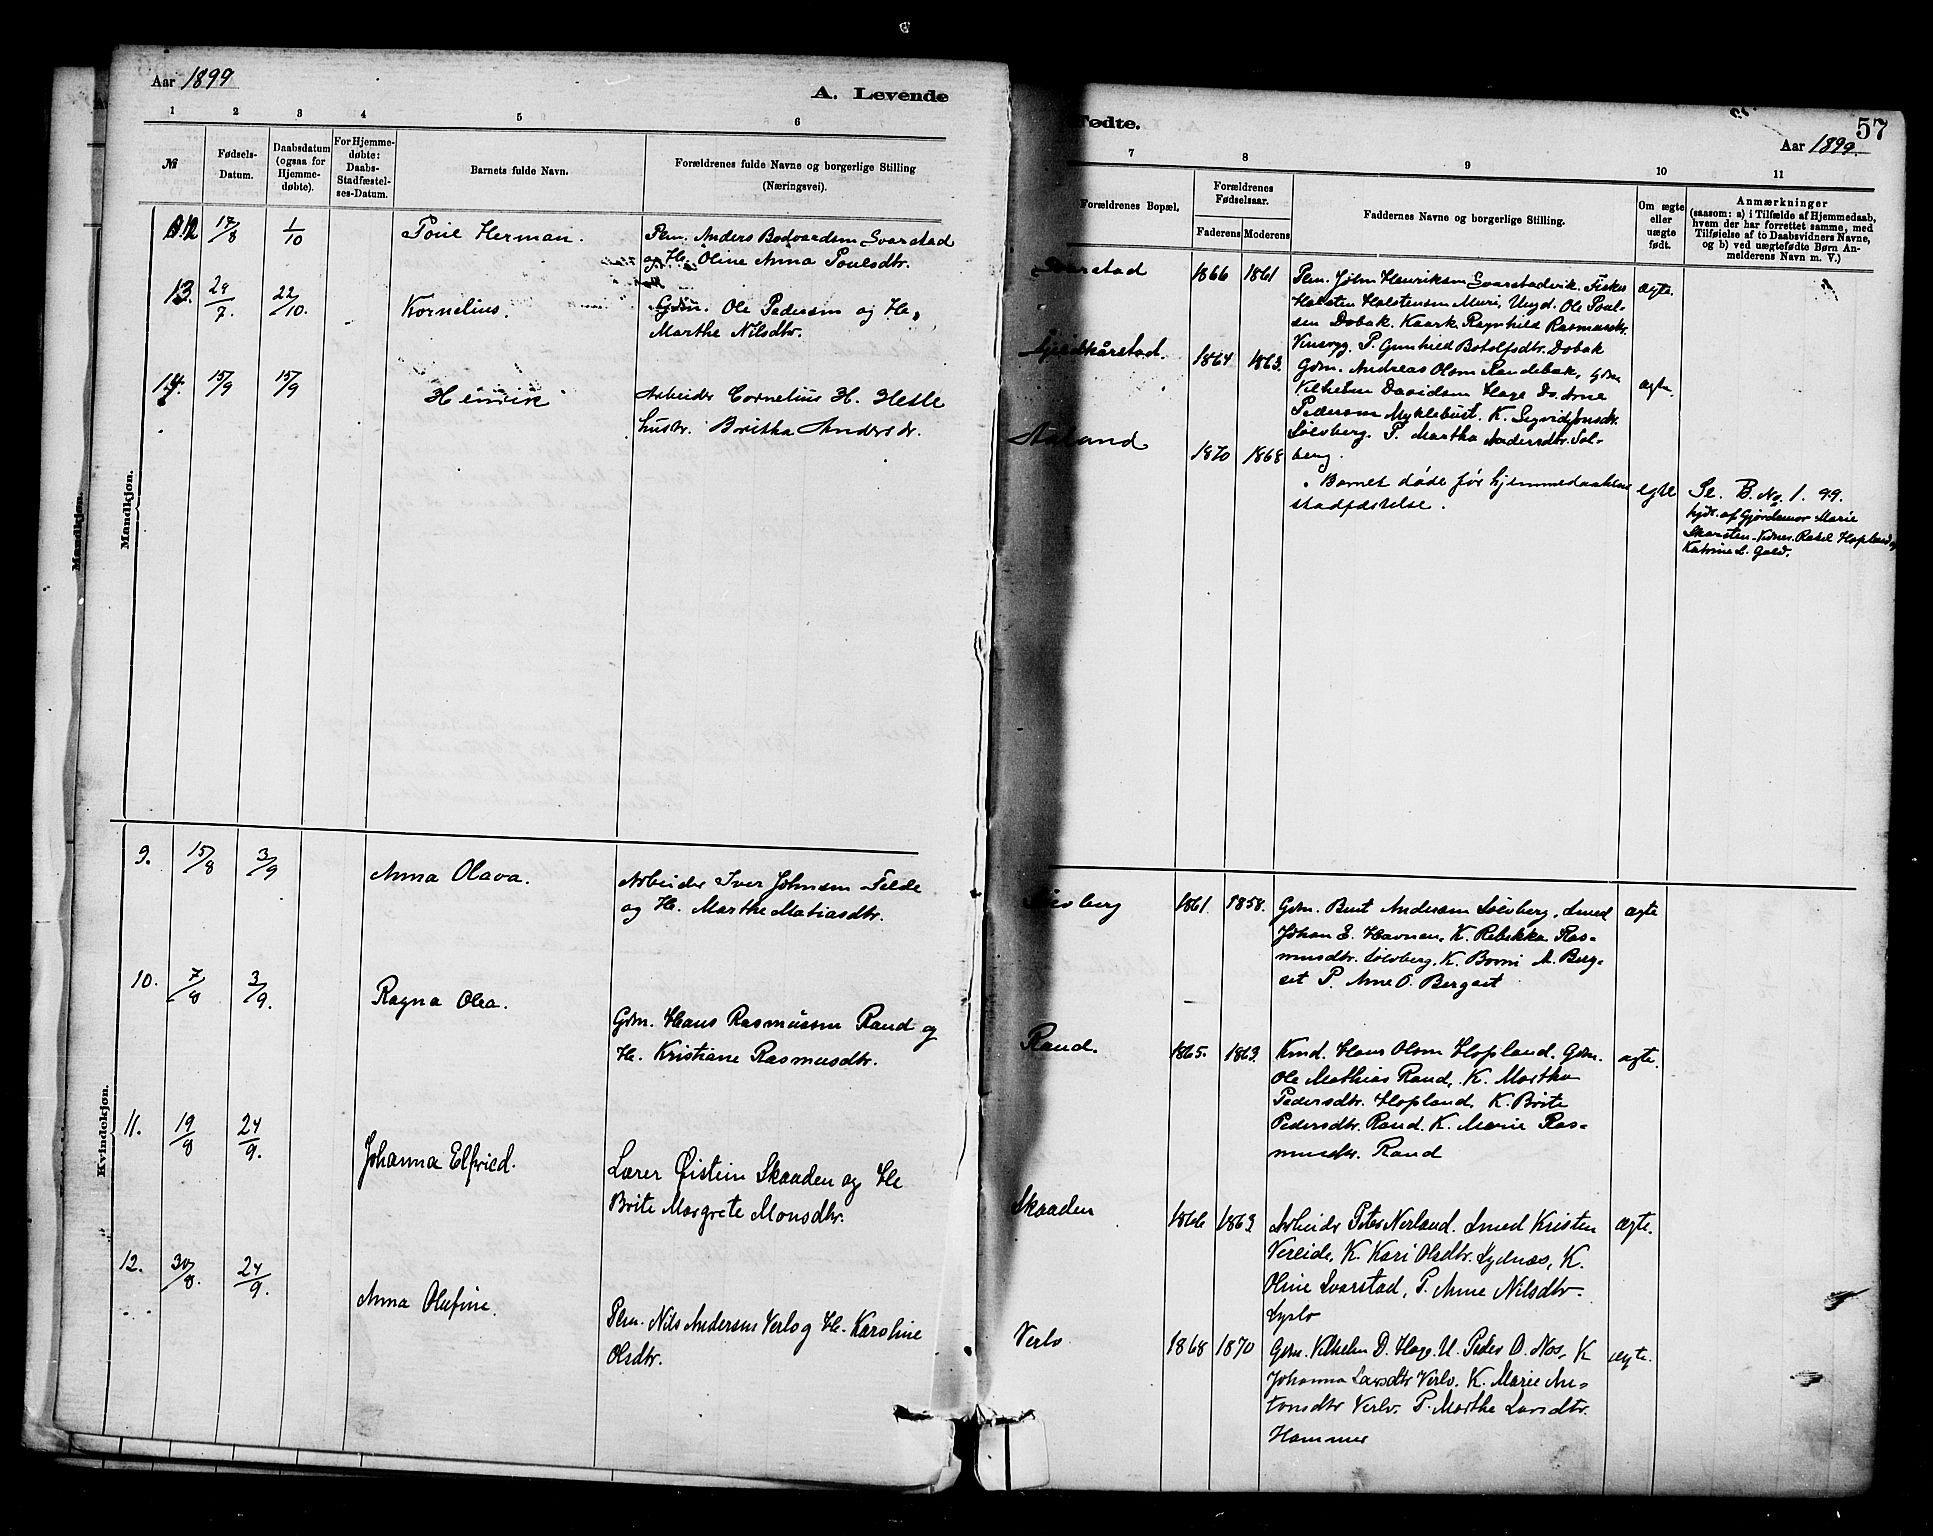 Aar 1899
A. Levende
1 2 3 4 5 6
№
Fødsels-
Datum.
Daabsdatum
(ogsaa for
Hjemme-
døbte).
For Hjemme-
døbte:
Daabs-
Stadfæstel-
ses-Datum.
Barnets fulde Navn.
Forældrenes fulde Navne og borgerlige Stilling
(Næringsvei).
Mandkjøn.
Mandkjøn.
12 17/8 1/10 Poul Herman.
Plm. Anders Bodvardsen Svarstad
og H. Oline Anna Poulsdtr.
13. 29/7. 22/10. Kornelius.
Gdm. Ole Pedersen og H.
Marthe Nilsdtr.
14. 15/9 15/9 Henrik
Arbeider Cornelius H. Hesle
hustr. Britha Andersdr.
Kvindekjøn.
9. 15/8 3/9 Anna Olava.
Arbeider Iver Johnsen Felde
og H. Marthe Matiasdtr.
10. 7/8 3/9. Ragna Olea.
Gdm. Hans Rasmussen Rand og
H. Kristiane Rasmusdtr.
11. 19/8 24/9. Johanna Elfried.
Lærer Øistein Skaaden og H
Brite Margrete Monsdtr.
12. 30/8. 24/9. Anna Olufine.
Plm. Nils Andersen Verlo og H. Karoline
Olsdtr.
Fødte.
57
Aar 1899.
7 8 9 10 11
Forældrenes Bopæl.
Forældrenes
Fødselsaar.
Faderens Moderens
Faddernes Navne og borgerlige Stilling.
Om ægte
eller
uægte
født.
Anmærkninger
(saasom: a) i Tilfælde af Hjemmedaab,
hvem der har forrettet samme, med
Tilføielse af to Daabsvidners Navne,
og b) ved uægtefødte Børn An-
melderens Navn m. V.)
Svarstad 1866 1861 ægte.
Plm. John Henriksen Svarstadvik. Fisker
Halsten Halstensen Muri, Ungd. Ole Poul-
sen Dobak. Kaark. Ragnhild Rasmusdtr.
P. Gunhild Botolfsdtr. Dobak
1864 1863. ægte.
Gdm. Andreas Olsen Randebak, Gdm
Vilhelm Davidsen Hage Do. Arne
Pedersen Myklebust. K.
Sølvberg. P. Martha Andersdtr. Søl-
berg.
Aaland 1870 1868 egte
Barnet døde før hjemmedaabens
stadfæstelse.
Se. B. No. 1. 99.
hjdt. af Gjordemor Marie
Skarsten. Vidner. Rakel Hopland og
Katrine L. Gald.
Sølvberg 1861. 1858. ægte
Gdm. Bent Andersen Sølvberg, Smed
Johan E. Havnen, K. Rebekka Ras-
musdtr. Sølvberg, K. Borni A. Berg-
set P. Arne O. Bergset
Rand. 1865. 1863. ægte.
Kmd. Hans Olsen Hopland. Gdm.
Ole Mathias Rand, K. Martha
Pedersdtr. Hopland, K. Brite
Pedersdtr. Rand. K. Marie Ras-
musdtr. Rand
Skaaden 1866 1863 ægte.
Arbeider Peter Nerland. Smed Kristen
Vereide, K. Kari Olsdtr. Sydnæs, K.
Oline Svarstad, P. Anne Nilsdtr.
Lyslo
Verlo 1868 1870 ægte.
Gdm. Vilhelm D. Hage. U. Peder O. Nos, K
Johanna Larsdtr Verlo. K. Marie An-
tonsdtr Verlo. P. Marthe Larsdtr.
Hammer